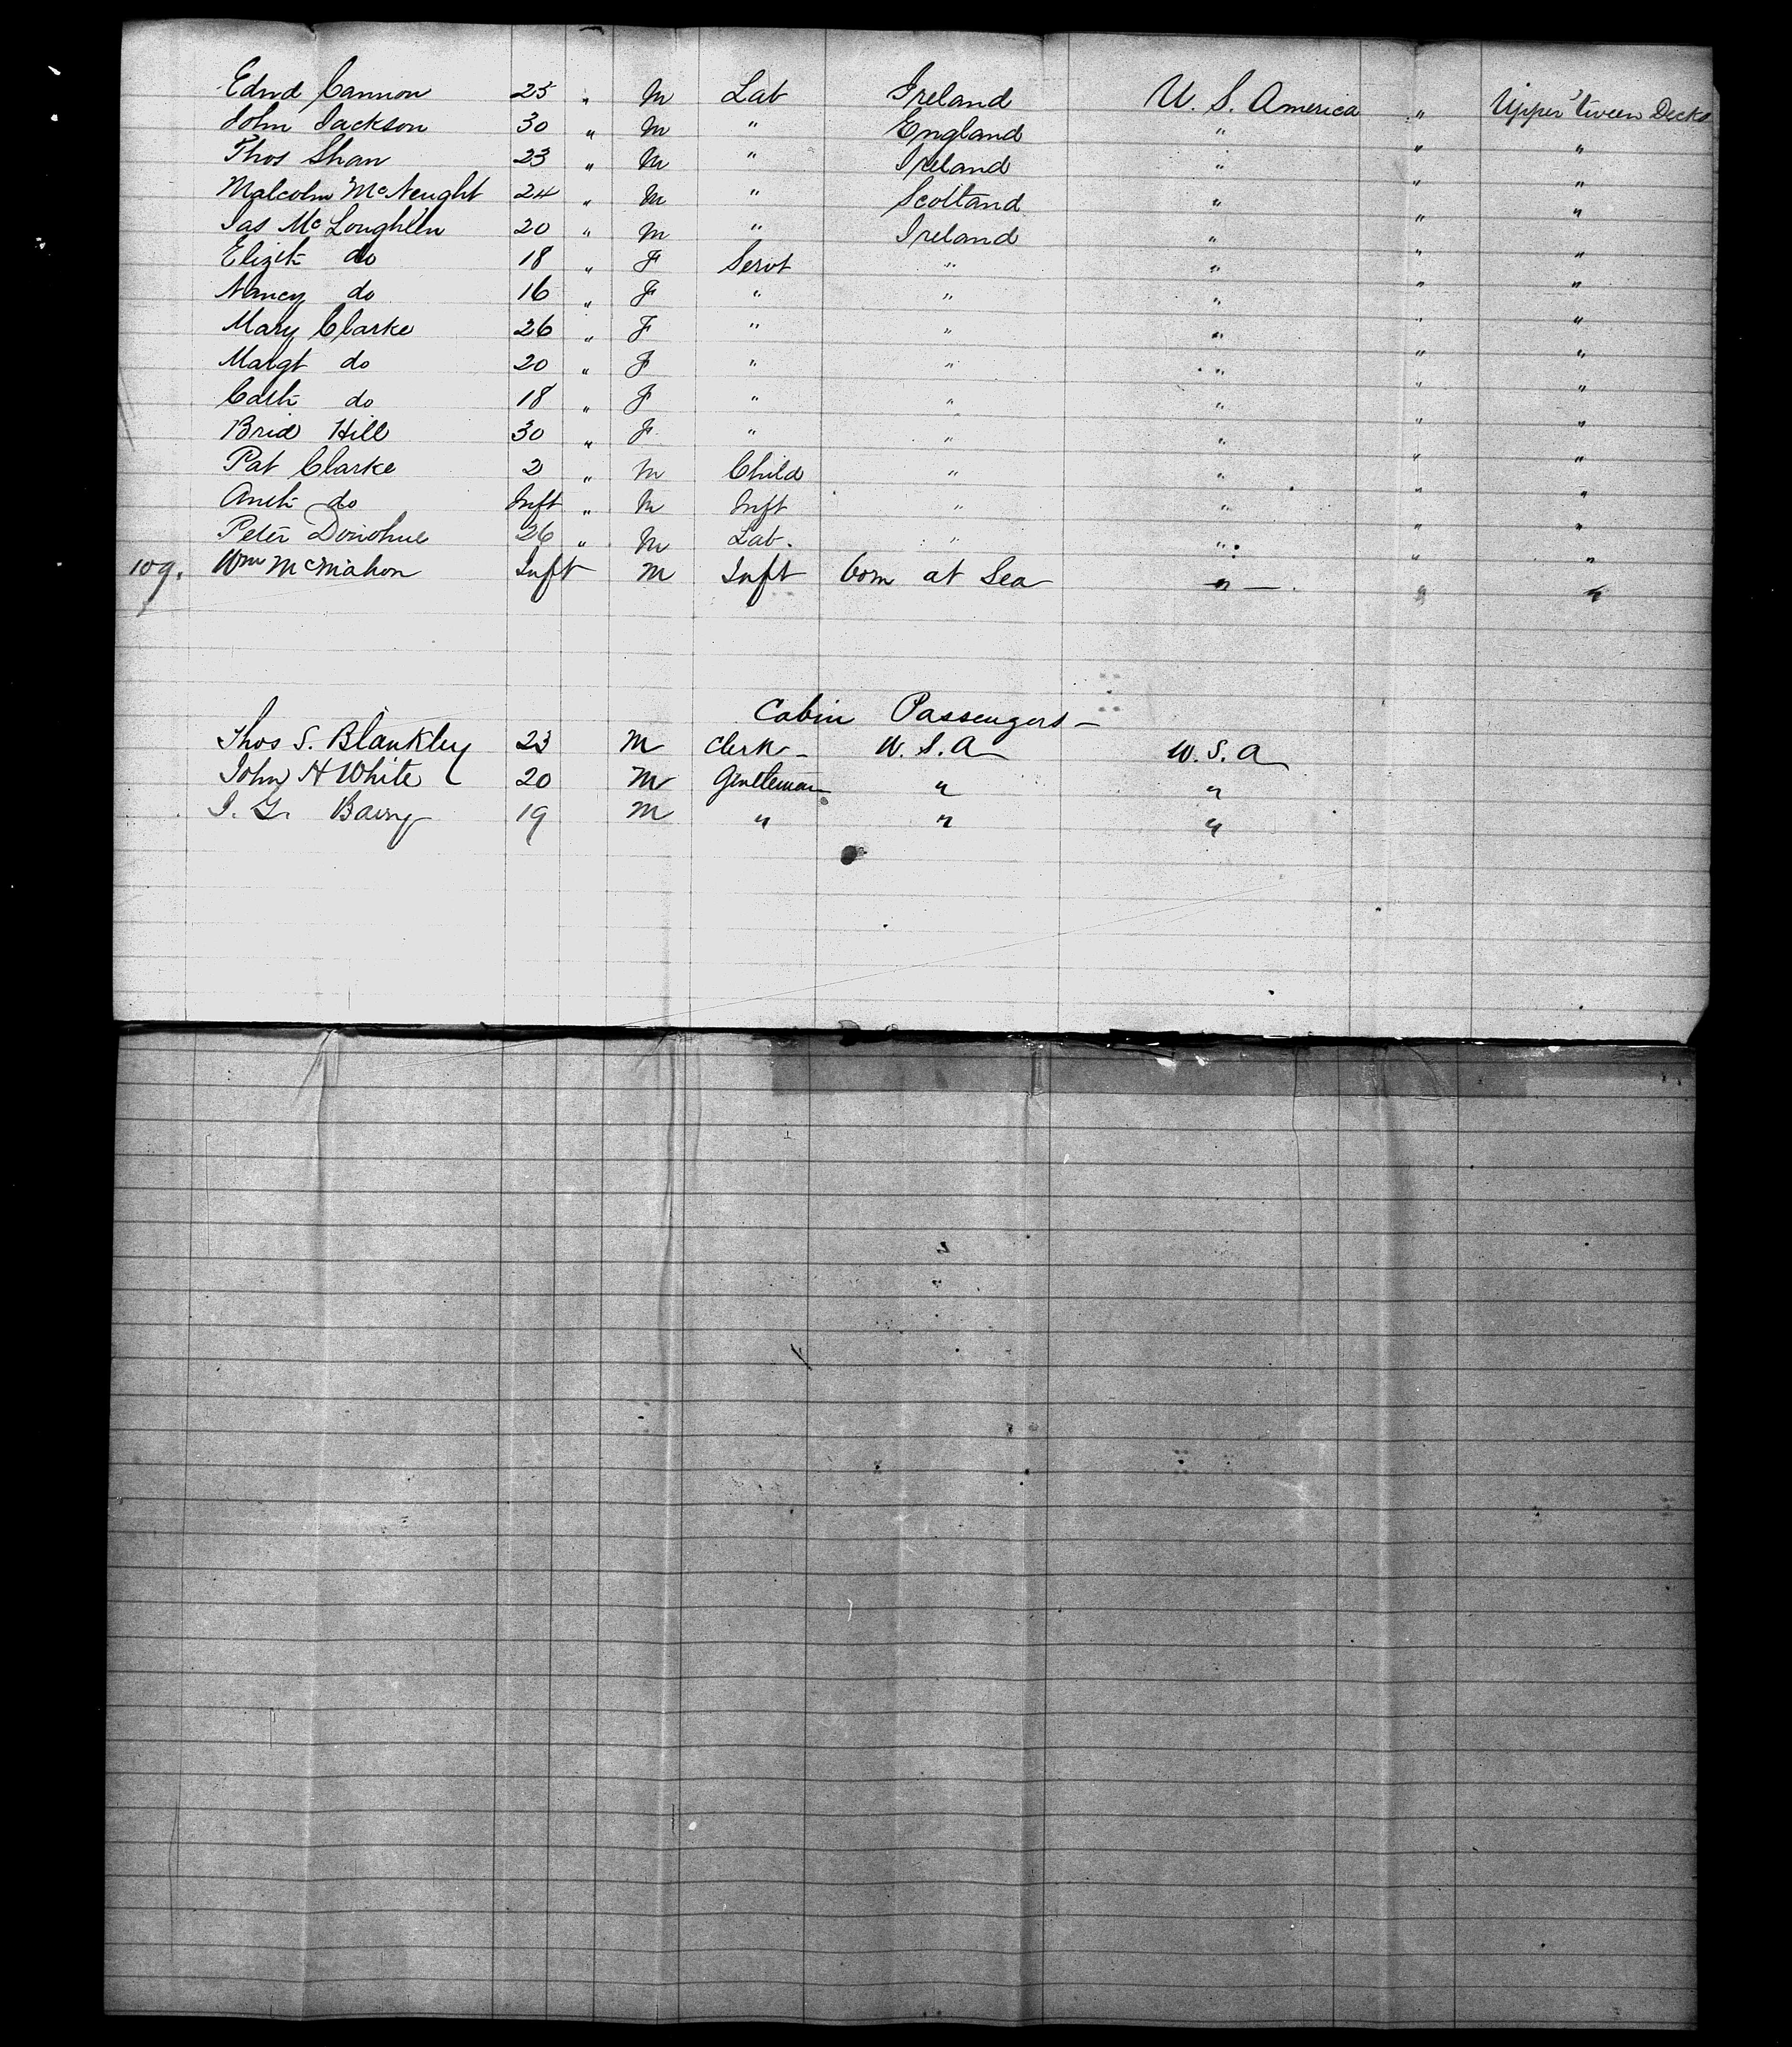 Edwd Cannon 25 " M Lab Ireland U. S. America " Upper 'tween Decks
John Jackson 30 " M " England " " "
Thos Shan 23 " M " Ireland " " "
Malcolm McNeught 24 " M " Scotland " " "
Jas McLoughlin 20 " M " Ireland " " "
Elizth do 18 " F Servt " " " "
Nancy do 16 " F " " " " "
Mary Clarke 26 " F " " " " "
Margt do 20 " F " " " " "
Cath do 18 " F " " " " "
Brid Hill 30 " F " " " " "
Pat Clarke 2 " M Child " " " "
Anth do Inft " M Inft " " " "
Peter Donohue 26 " M Lab. " " " "
109. Wm McMahon Inft M Inft born at Sea " " "
Cabin Passengers
Thos S. Blankley 23 M Clerk U.S.A U.S.A
John H White 20 M Gentleman " "
J. G. 19 M " " "